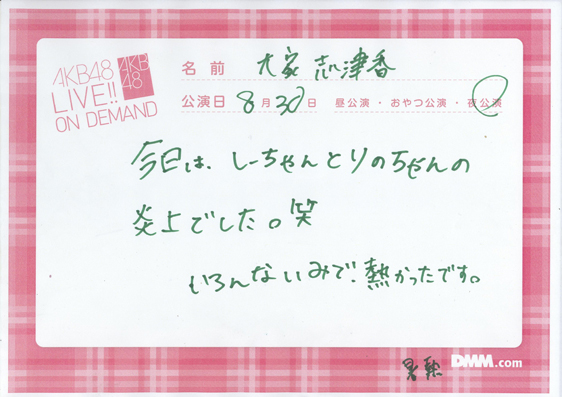 AKB48
LIVE!!
ON DEMAND
AKB
48
名前 大家志津香
公演日 8月30日 昼公演・おやつ公演・夜公演
今日は、しーちゃんとりのちゃんの
炎上でした。笑
いろんないみで、熱かったです。
DMM.com